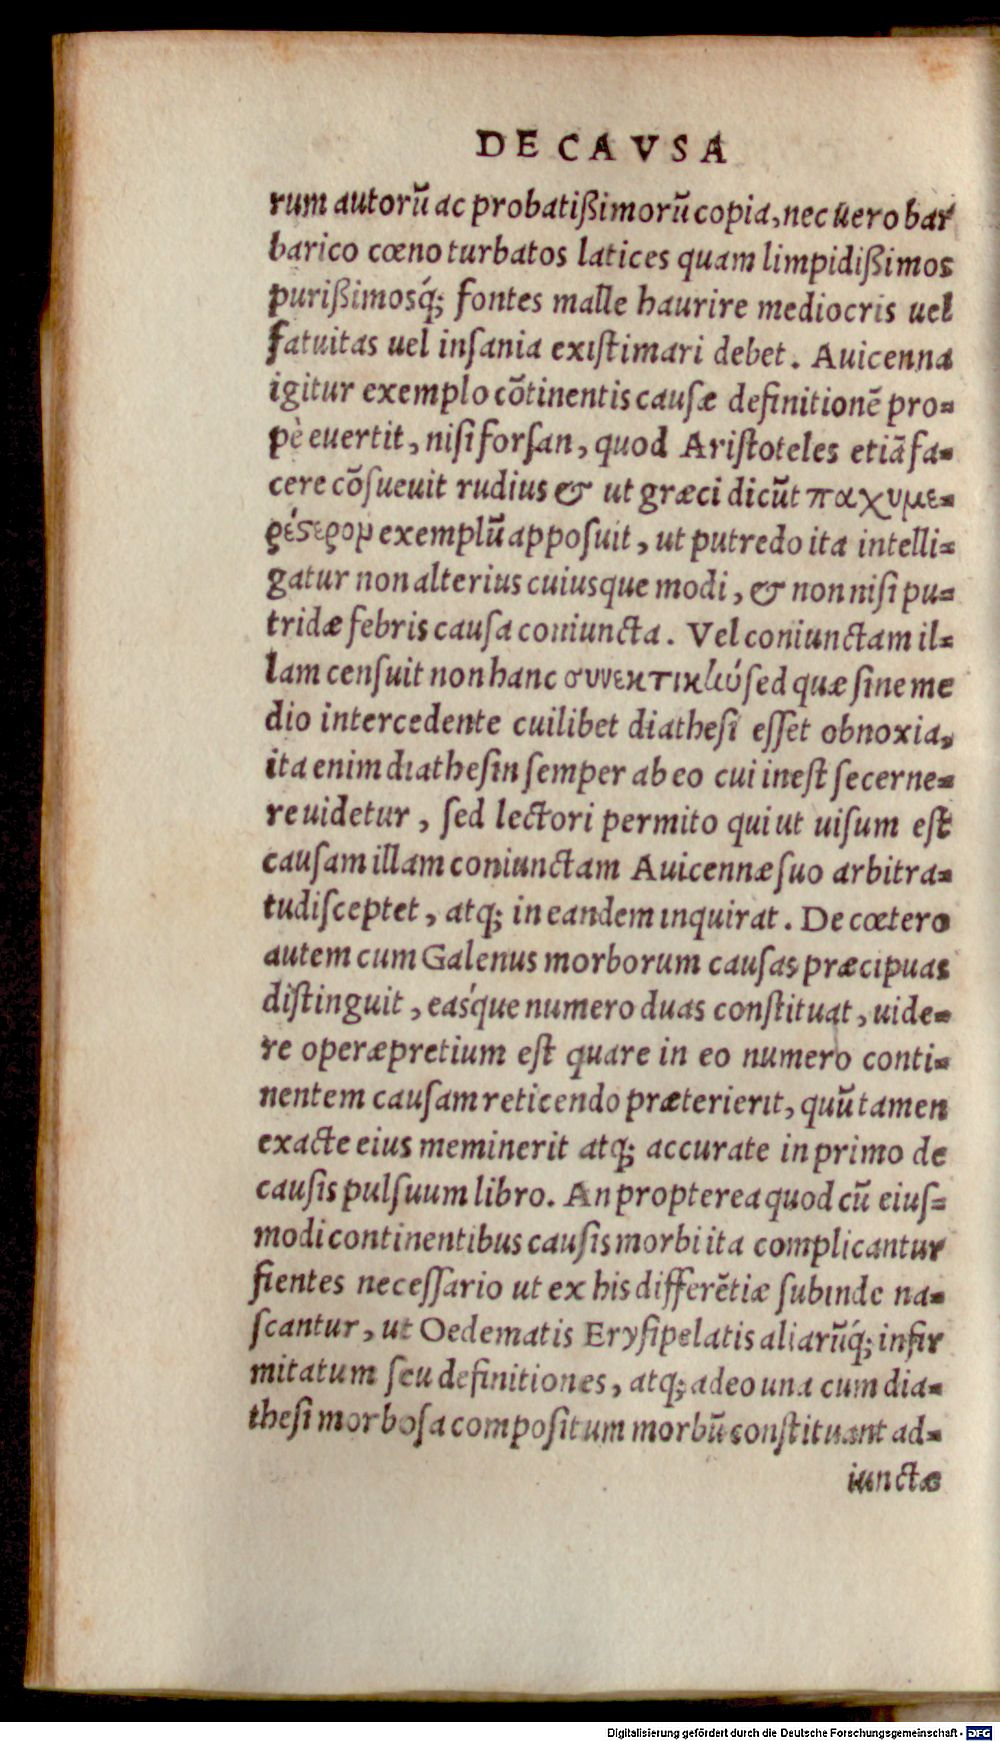 DE CAVSA
rum autorũ ac probatißimorũ copia, nec uero bar
barico cœno turbatos latices quam limpidißimos
purißimosq́; fontes malle haurire mediocris uel
fatuitas uel inſania exiſtimari debet. Auicenna
igitur exemplo cõtinentis cauſæ definitionẽ pro=
pè euertit, niſi forſan, quod Ariſtoteles etiã fa=
cere cõſueuit rudius & ut græci dicũt παχυμε=
ρέςερομ exemplũ appoſuit, ut putredo ita intelli=
gatur non alterius cuiusque modi, & non niſi pu=
tridæ febris cauſa coniuncta. Vel coniunctam il=
lam cenſuit non hanc συνεκτικὴν ſed quæ ſine me
dio intercedente cuilibet diatheſi eſſet obnoxia,
ita enim diatheſin ſemper ab eo cui ineſt ſecerne=
re uidetur, ſed lectori permito qui ut uiſum eſt
cauſam illam coniunctam Auicennæ ſuo arbitra=
tu diſceptet, atq; in eandem inquirat. De cœtero
autem cum Galenus morborum cauſas præcipuas
diſtinguit, eaśque numero duas conſtituat, uide=
re operæpretium eſt quare in eo numero conti=
nentem cauſam reticendo præterierit, quũ tamen
exacte eius meminerit atq; accurate in primo de
cauſis pulſuum libro. An propterea quod cũ eiuſ=
modi continentibus cauſis morbi ita complicantur
fientes neceſſario ut ex his differẽtiæ ſubinde na=
ſcantur, ut Oedematis Eryſipelatis aliarũq́; infir
mitatum ſeu definitiones, atq; adeo una cum dia=
theſi morboſa compoſitum morbũ conſtituant ad=
iunctæ
Digitalisierung gefördert durch die Deutsche Forschungsgemeinschaft - DFG